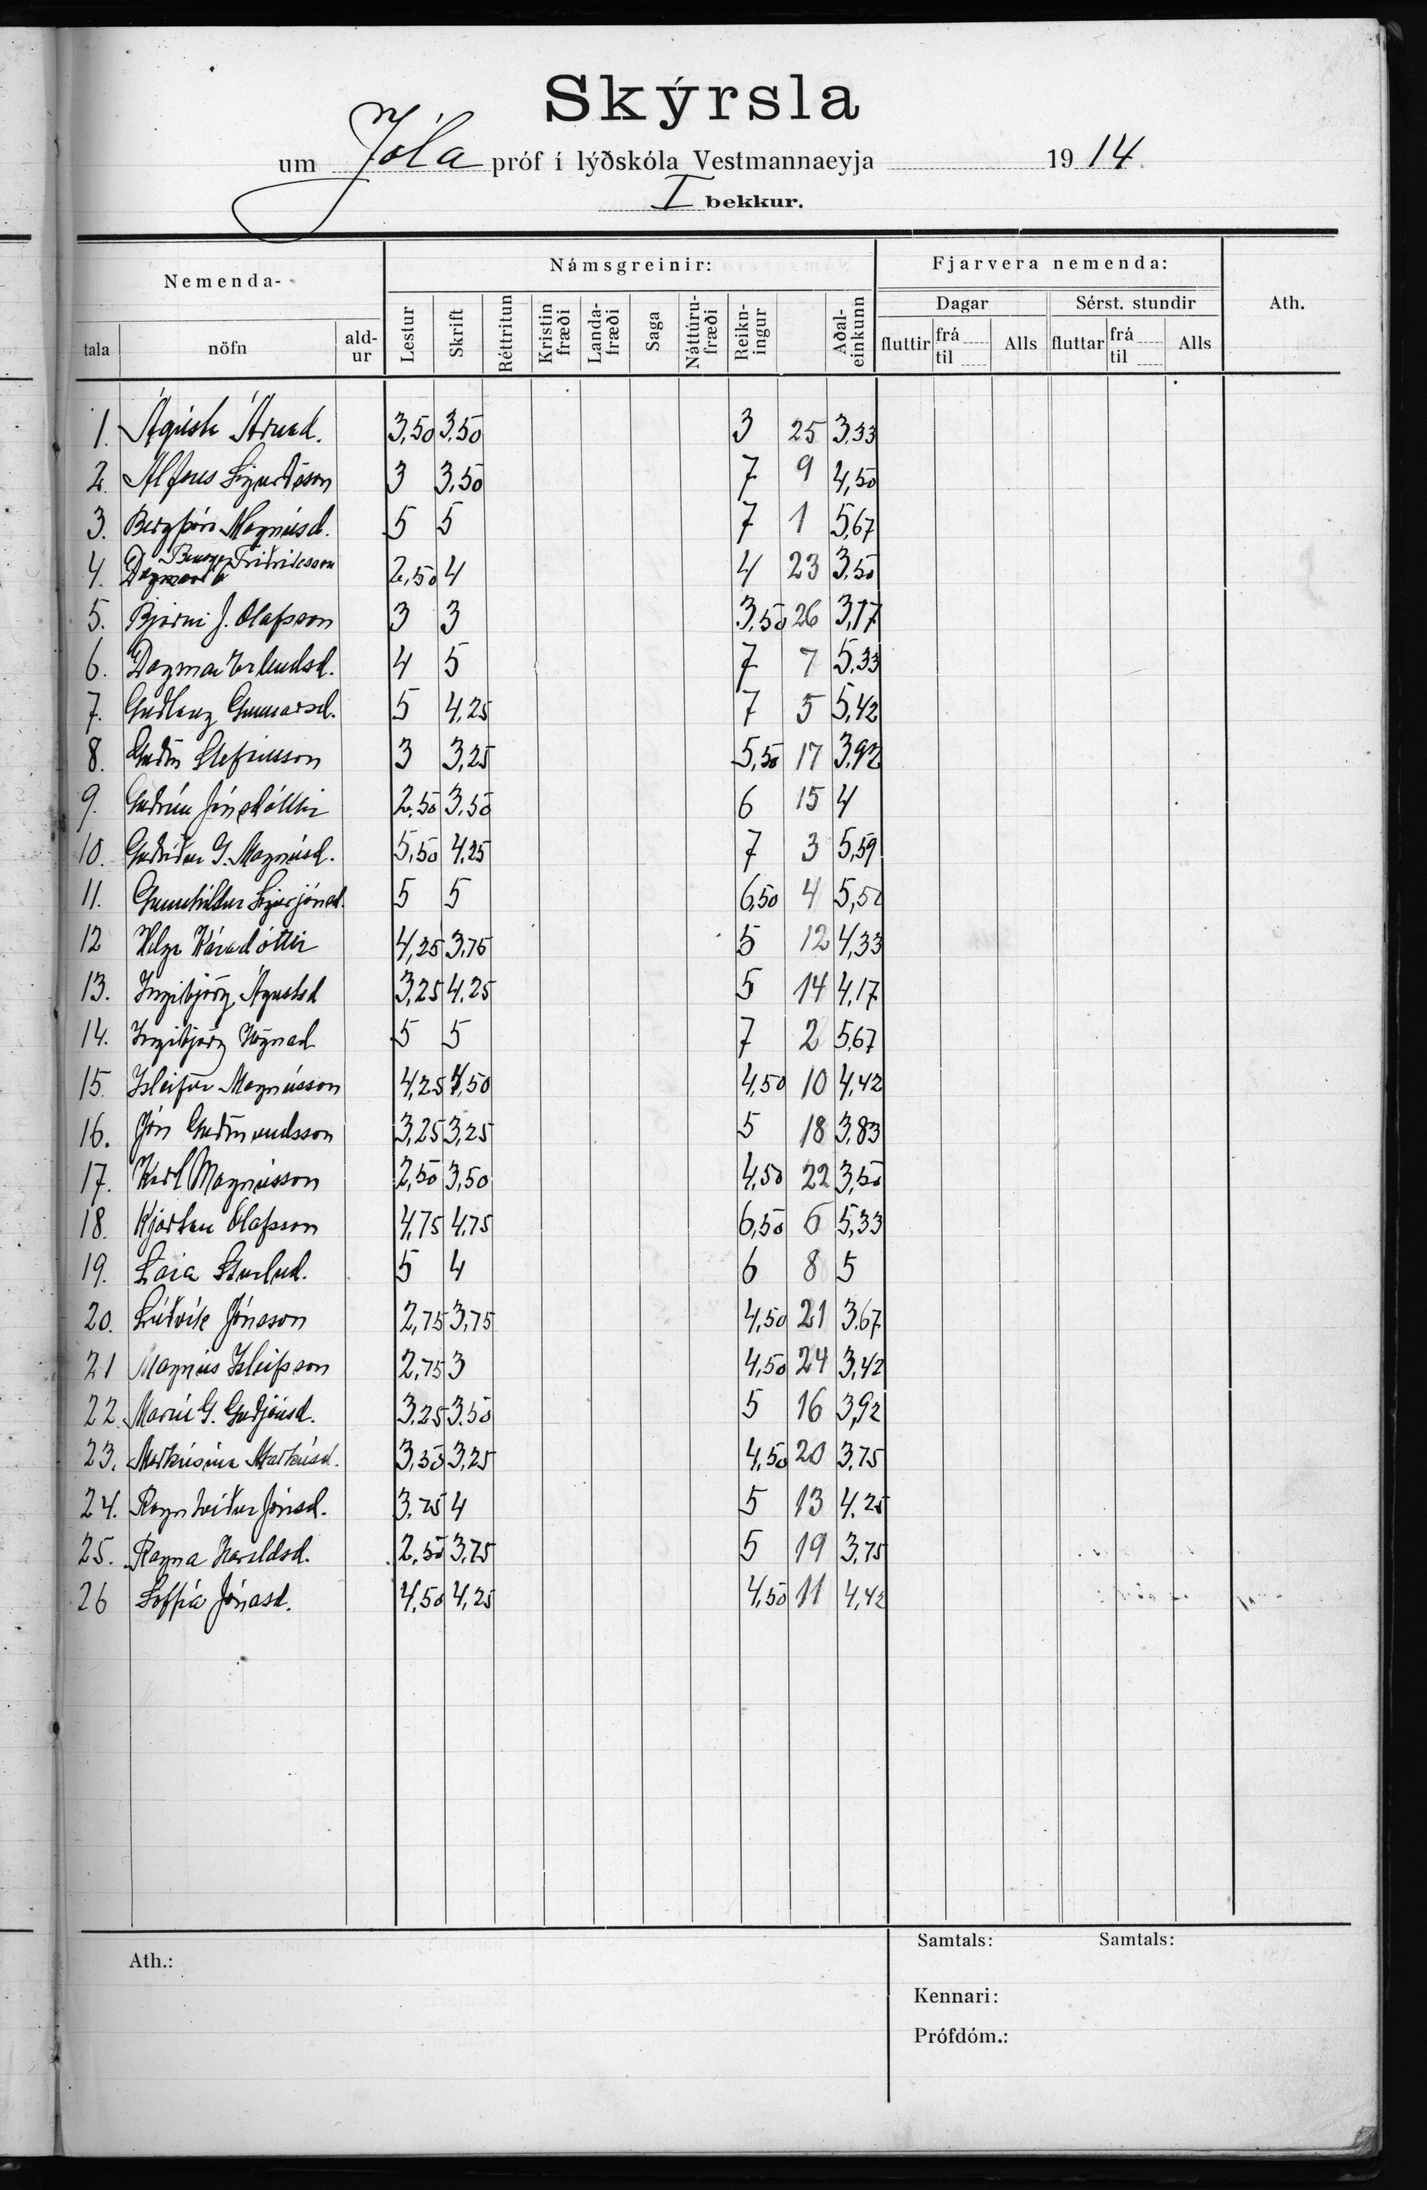 Skýrsla
um Jóla próf í lýðskóla Vestmannaeyja 1914.
I bekkur.
Nemenda- Námsgreinir: Fjarvera nemenda: Ath.
Dagar Sérst. stundir
tala nöfn ald-ur Lestur Skrift Réttritun Kristin fræði Landa-fræði Saga Náttúru-fræði Reikn-ingur Aðal-einkunn fluttir frá til Alls fluttar frá til Alls
1. Ágústa Árnad. 3,50 3,50 3 25 3,33
2. Alfons Sigurðsson 3 3,50 7 9 4,50
3. Bergþóra Magnúsd. 5 5 7 1 5,67
4. Friðriksson 2,50 4 4 23 3,50
5. Bjarni J. Olafsson 3 3 3,50 26 3,17
6. Dagmar Erlendsd. 4 5 7 7 5,33
7. Guðlaug Gunnarsd. 5 4,25 7 5 5,42
8. Guðm Stefánsson 3 3,25 5,50 17 3,92
9. Guðrún Jónsdóttir 2,50 3,50 6 15 4
10. Guðríður G. Magnúsd. 5,50 4,25 7 3 5,59
11. Gunnhildur Sigurjónsd. 5 5 6,50 4 5,50
12 Helga Káradóttir 4,25 3,75 5 12 4,33
13. Ingibjörg Ágústsd 3,25 4,25 5 14 4,17
14. Ingibjörg Högnad 5 5 7 2 5,67
15. Isleifur Magnússon 4,25 4,50 4,50 10 4,42
16. Jón Guðmundsson 3,25 3,25 5 18 3,83
17. Karl Magnússon 2,50 3,50 4,50 22 3,50
18. Kjartan Olafsson 4,75 4,75 6,50 6 5,33
19. Lára Sturlud. 5 4 6 8 5
20. Lúðvík Jónsson 2,75 3,75 4,50 21 3,67
21 Magnús Isleifsson 2,75 3 4,50 24 3,42
22. María G. Guðjónsd. 3,25 3,50 5 16 3,92
23. Markúsína Markúsd. 3,50 3,25 4,50 20 3,75
24. Ragnheiður Jónsd. 3,75 4 5 13 4,25
25. Ragna Haraldsd. 2,50 3,75 5 19 3,75
26 Soffía Jónasd. 4,50 4,25 4,50 11 4,42
Ath.:
Samtals: Samtals:
Kennari:
Prófdóm.: